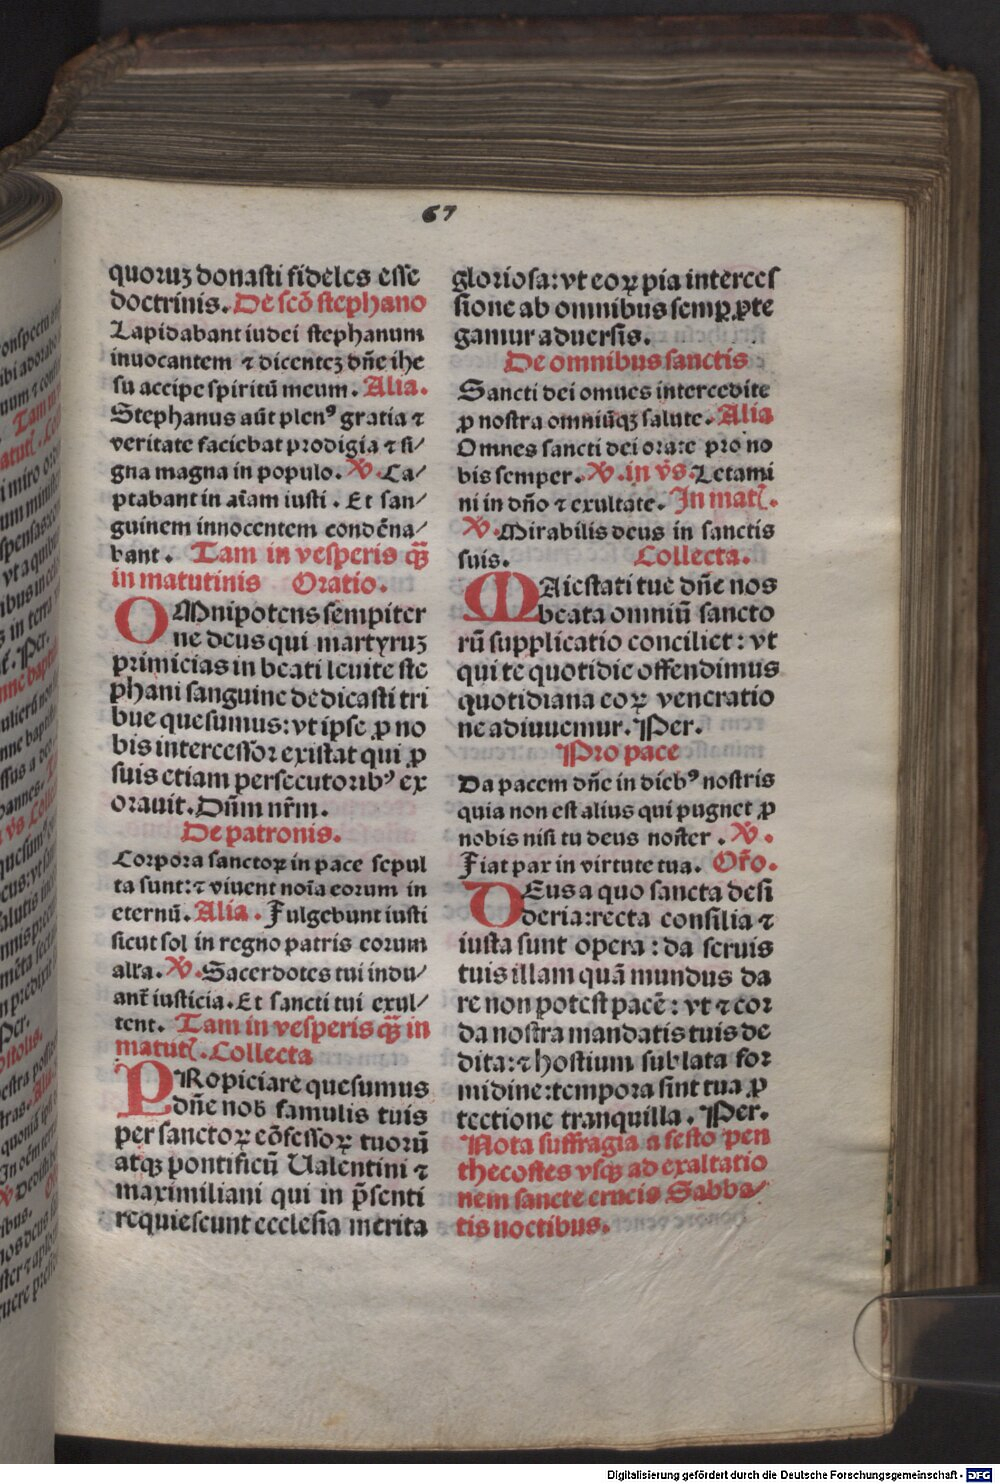 67
quoruꝫ donasti fideles esse
doctrinis. De scō stephano
Lapidabant iudei stephanum
inuocantem ⁊ dicenteꝫ dn̄e ihe
su accipe spiritū meum. Alia.
Stephanus aūt plenꝰ gratia ⁊
veritate faciebat prodigia ⁊ si/
gna magna in populo. V̄. Ca/
ptabant in aīam iusti. Et san/
guinem innocentem condēna/
bant. Tam in vesperis qꝫ̄
in matutinis Oratio.
OMnipotens sempiter
ne deus qui martyruꝫ
primicias in beati leuite ste
phani sanguine dedicasti tri
bue quesumus: vt ipse ꝓ no
bis intercessor existat qui ꝓ
suis etiam persecutoribꝰ ex
orauit. Dn̄m nr̄m.
De patronis.
Corpora sanctoꝝ in pace sepul
ta sunt: ⁊ viuent noīa eorum in
eternū. Alia. Fulgebunt iusti
sicut sol in regno patris eorum
alla. V̄. Sacerdotes tui indu/
ant̄ iusticia. Et sancti tui exul/
tent. Tam in vesperis qꝫ̄ in
matut̄. Collecta
PRopiciare quesumus
dn̄e nob famulis tuis
per sanctoꝝ cōfessoꝝ tuorū
atqꝫ pontificū Ualentini ⁊
maximiliani qui in p̄senti
requiescunt ecclesia merita
gloriosa: vt eoꝝ pia interces
sione ab omnibus semꝑ ꝓte
gamur aduersis.
De omnibus sanctis
Sancti dei omues intercedite
ꝓ nostra omniūqꝫ salute. Alia
Omnes sancti dei orate pro no
bis semper. V̄. in v̄s. Letami
ni in dn̄o ⁊ exultate. In mat̄.
V̄. Mirabilis deus in sanctis
suis. Collecta.
MAiestati tue dn̄e nos
beata omniū sancto
rū supplicatio conciliet: vt
qui te quotidie offendimus
quotidiana eoꝝ veneratio
ne adiuuemur. Per.
Pro pace
Da pacem dn̄e in diebꝰ nostris
quia non est alius qui pugnet ꝓ
nobis nisi tu deus noster. V̄.
Fiat pax in virtute tua. Or̄o.
DEus a quo sancta desi
deria: recta consilia ⁊
iusta sunt opera: da seruis
tuis illam quā mundus da
re non potest pacē: vt ⁊ cor
da nostra mandatis tuis de
dita: ⁊ hostium sublata for
midine: tempora sint tua ꝓ
tectione tranquilla. Per.
Nota suffragia a festo pen
thecostes vsqꝫ ad exaltatio
nem sancte crucis Sabba/
tis noctibus.
Digitalisierung gefördert durch die Deutsche Forschungsgemeinschaft - DFG